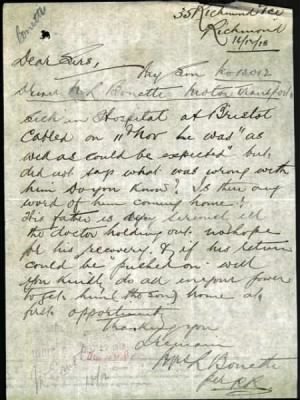 Bonette
35 Richmond Tce
Richmond
16/12/18
Dear Sirs,
My Son No
Driver L Bonette Motor Transport
Sick in Hospital at Bristol
Cabled on 11th Nov he was "as
well as could be expected" but
did not say what was wrong with
him Do you know? Is there any
word of him coming home?
His father is ill
the doctor holding out no hope
for his recovery. & if his return
could be "pushed on" will
you kindly do all in your power
to get him (the son) home at
first opportunity
Thanking you
I remain
Mrs L Bonette
per R.R.